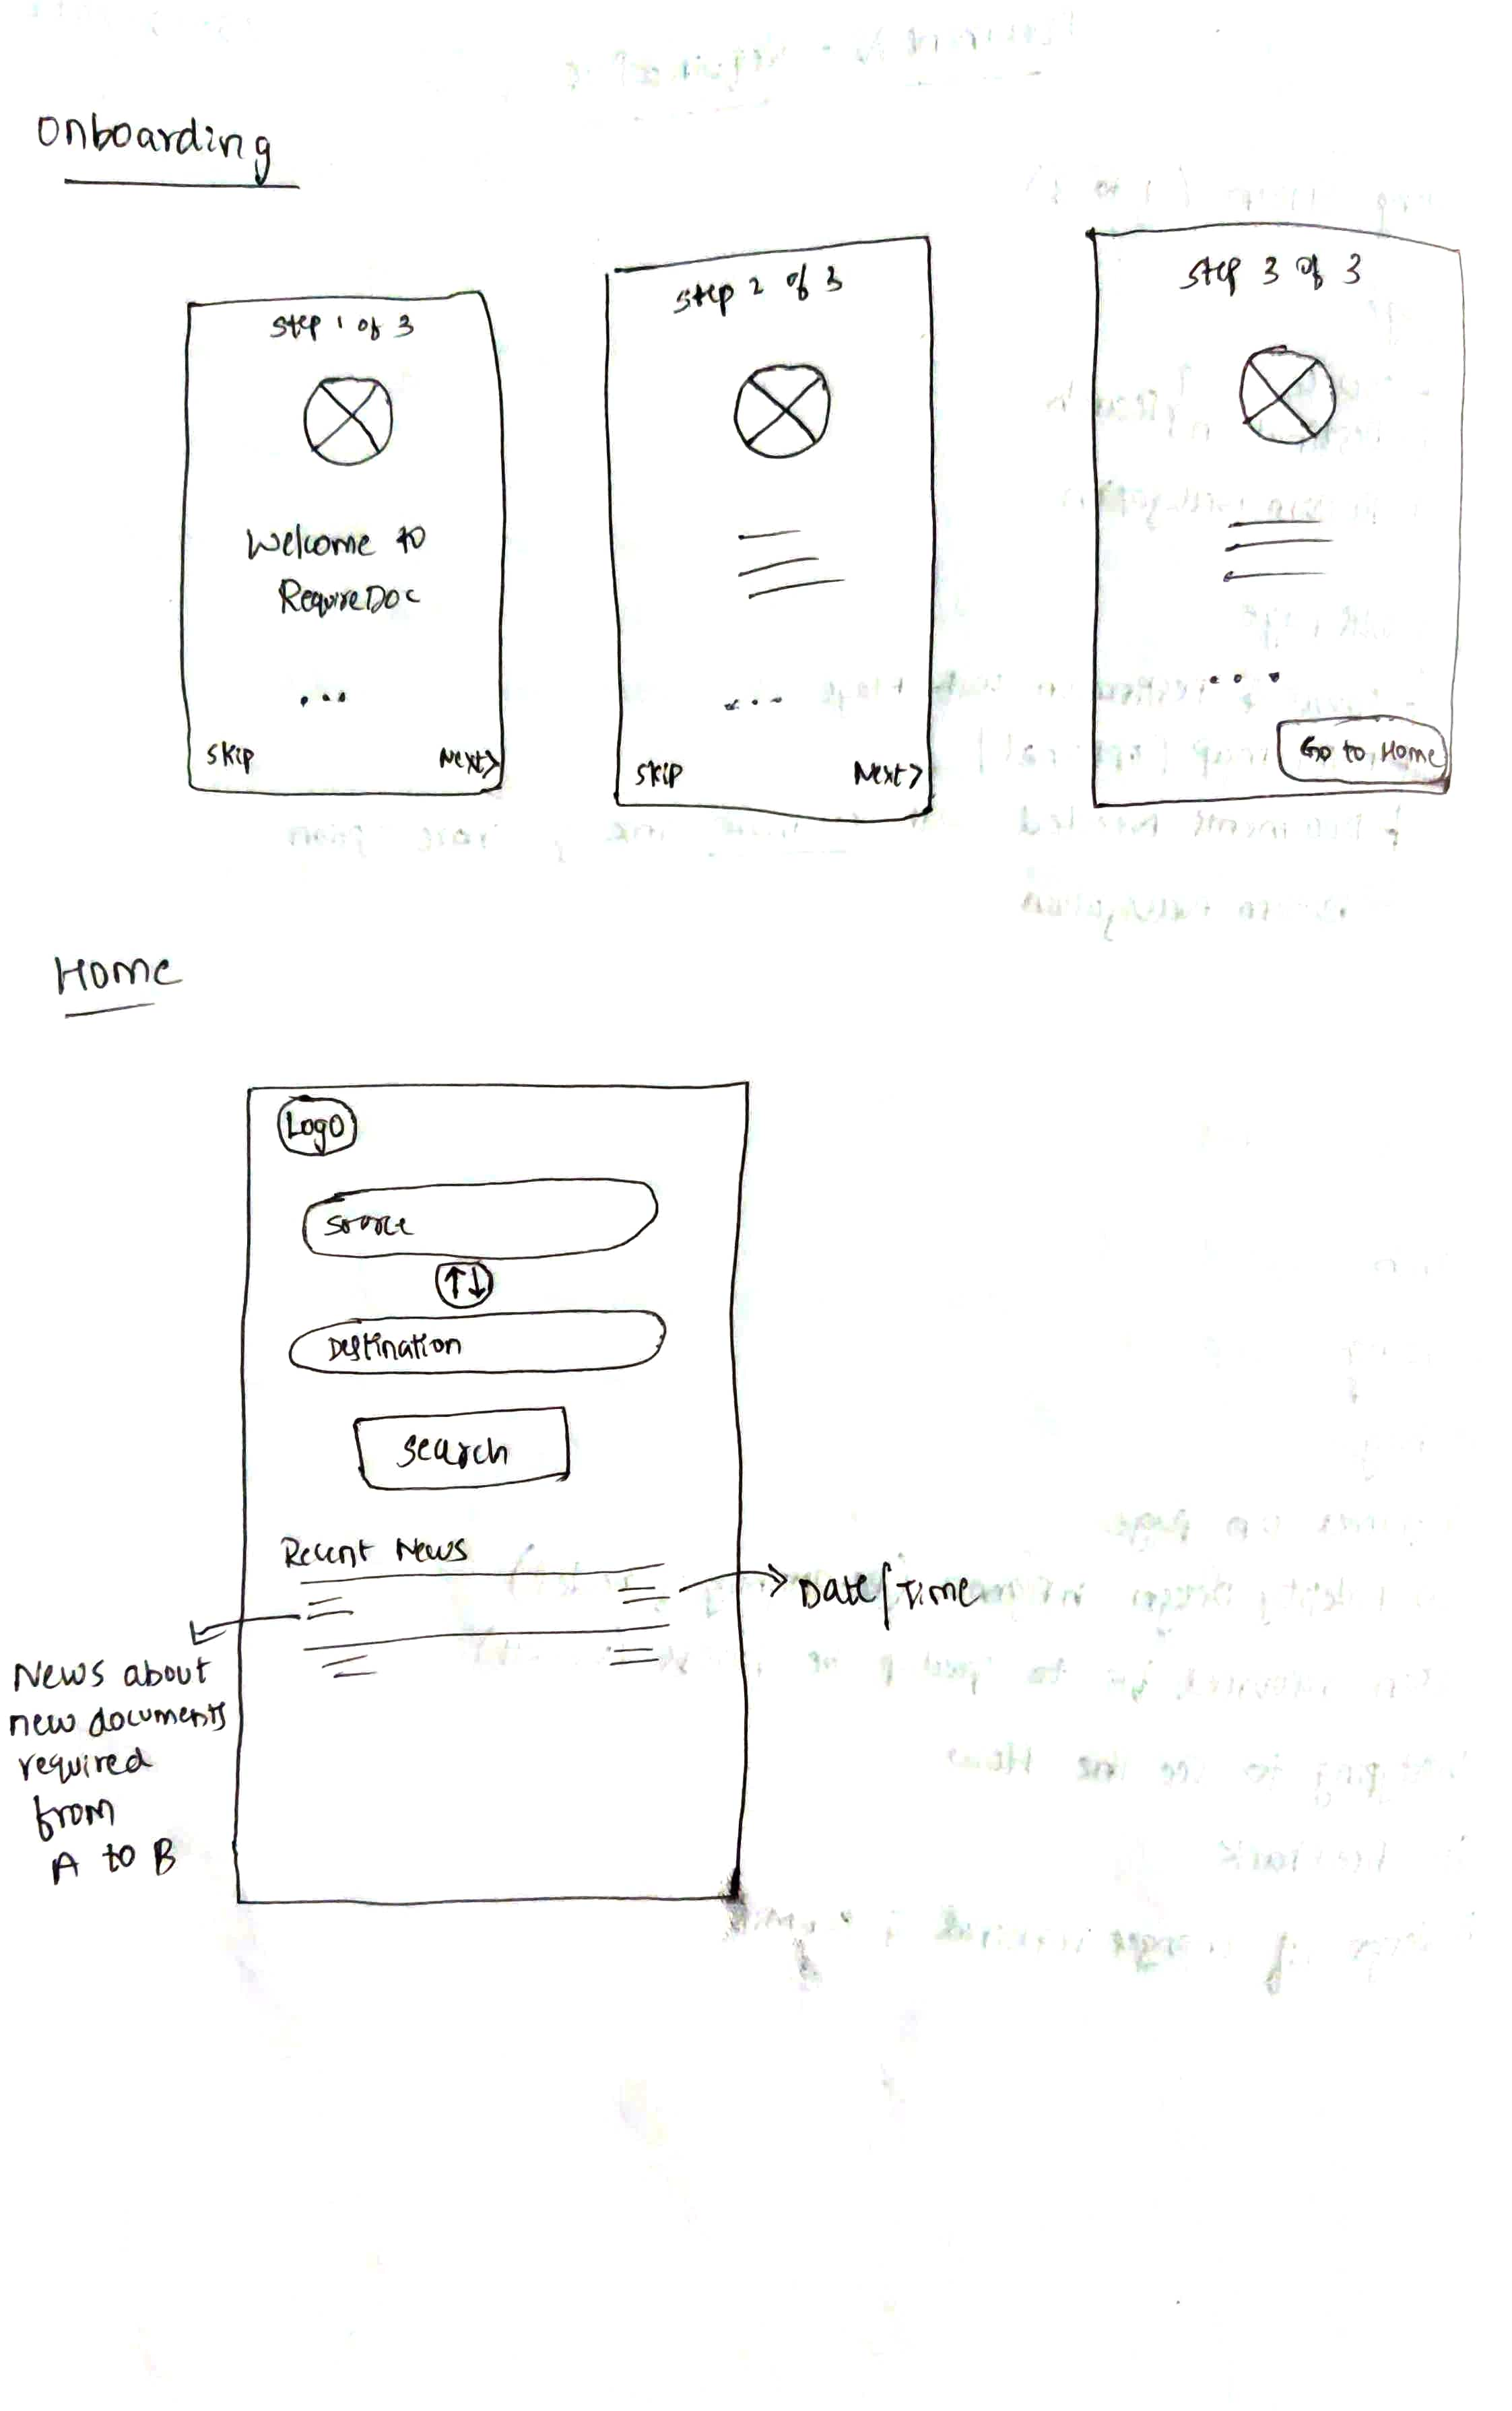 Onboarding
Step 1 of 3
Welcome to
RequireDoc
Skip
Next>
Step 2 of 3
Skip
Next>
Step 3 of 3
Go to Home
Home
Logo
Source
↑↓
Destination
Search
Recent News
Date/Time
News about
new documents
required
from
A to B